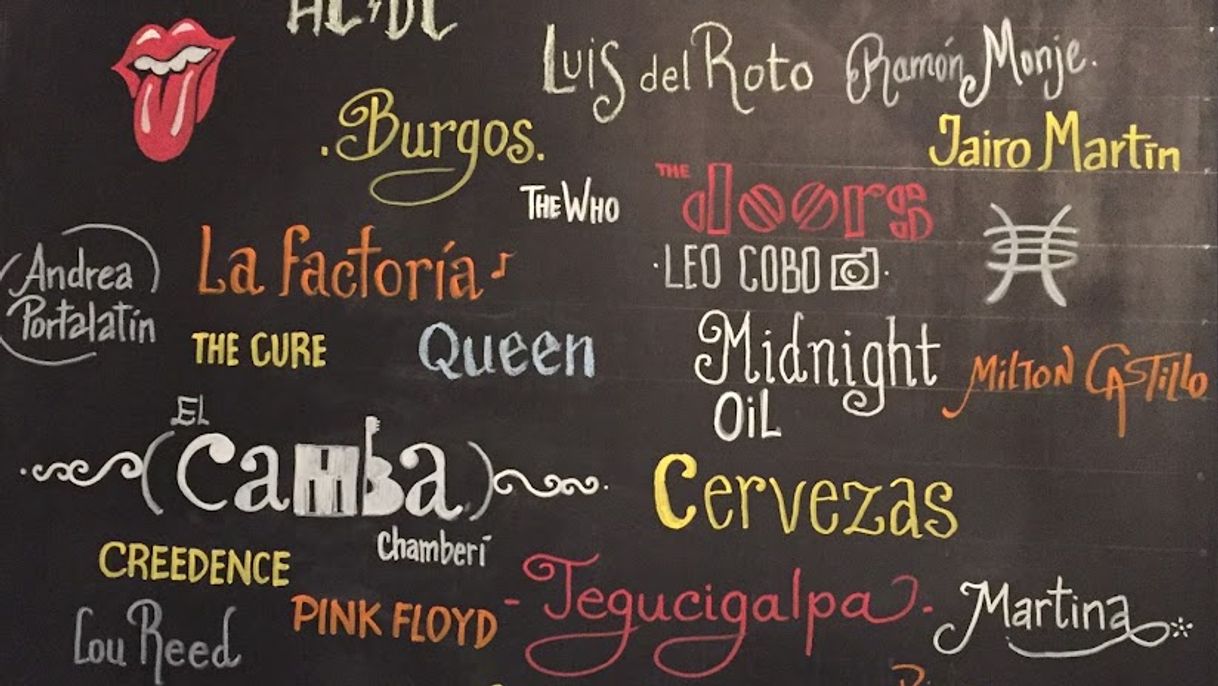 AC/DC
Luis del Roto
Ramón Monje.
.Burgos.
Jairo Martín
THE WHO
THE doors
Andrea
Portalatín
La factoría
·LEO COBO·
THE CURE
Queen
Midnight
OiL
MiLTON CASTillo
EL
Camba
Chamberí
Cervezas
CREEDENCE
Lou Reed
PINK FLOYD
-Tegucigalpa-
Martina